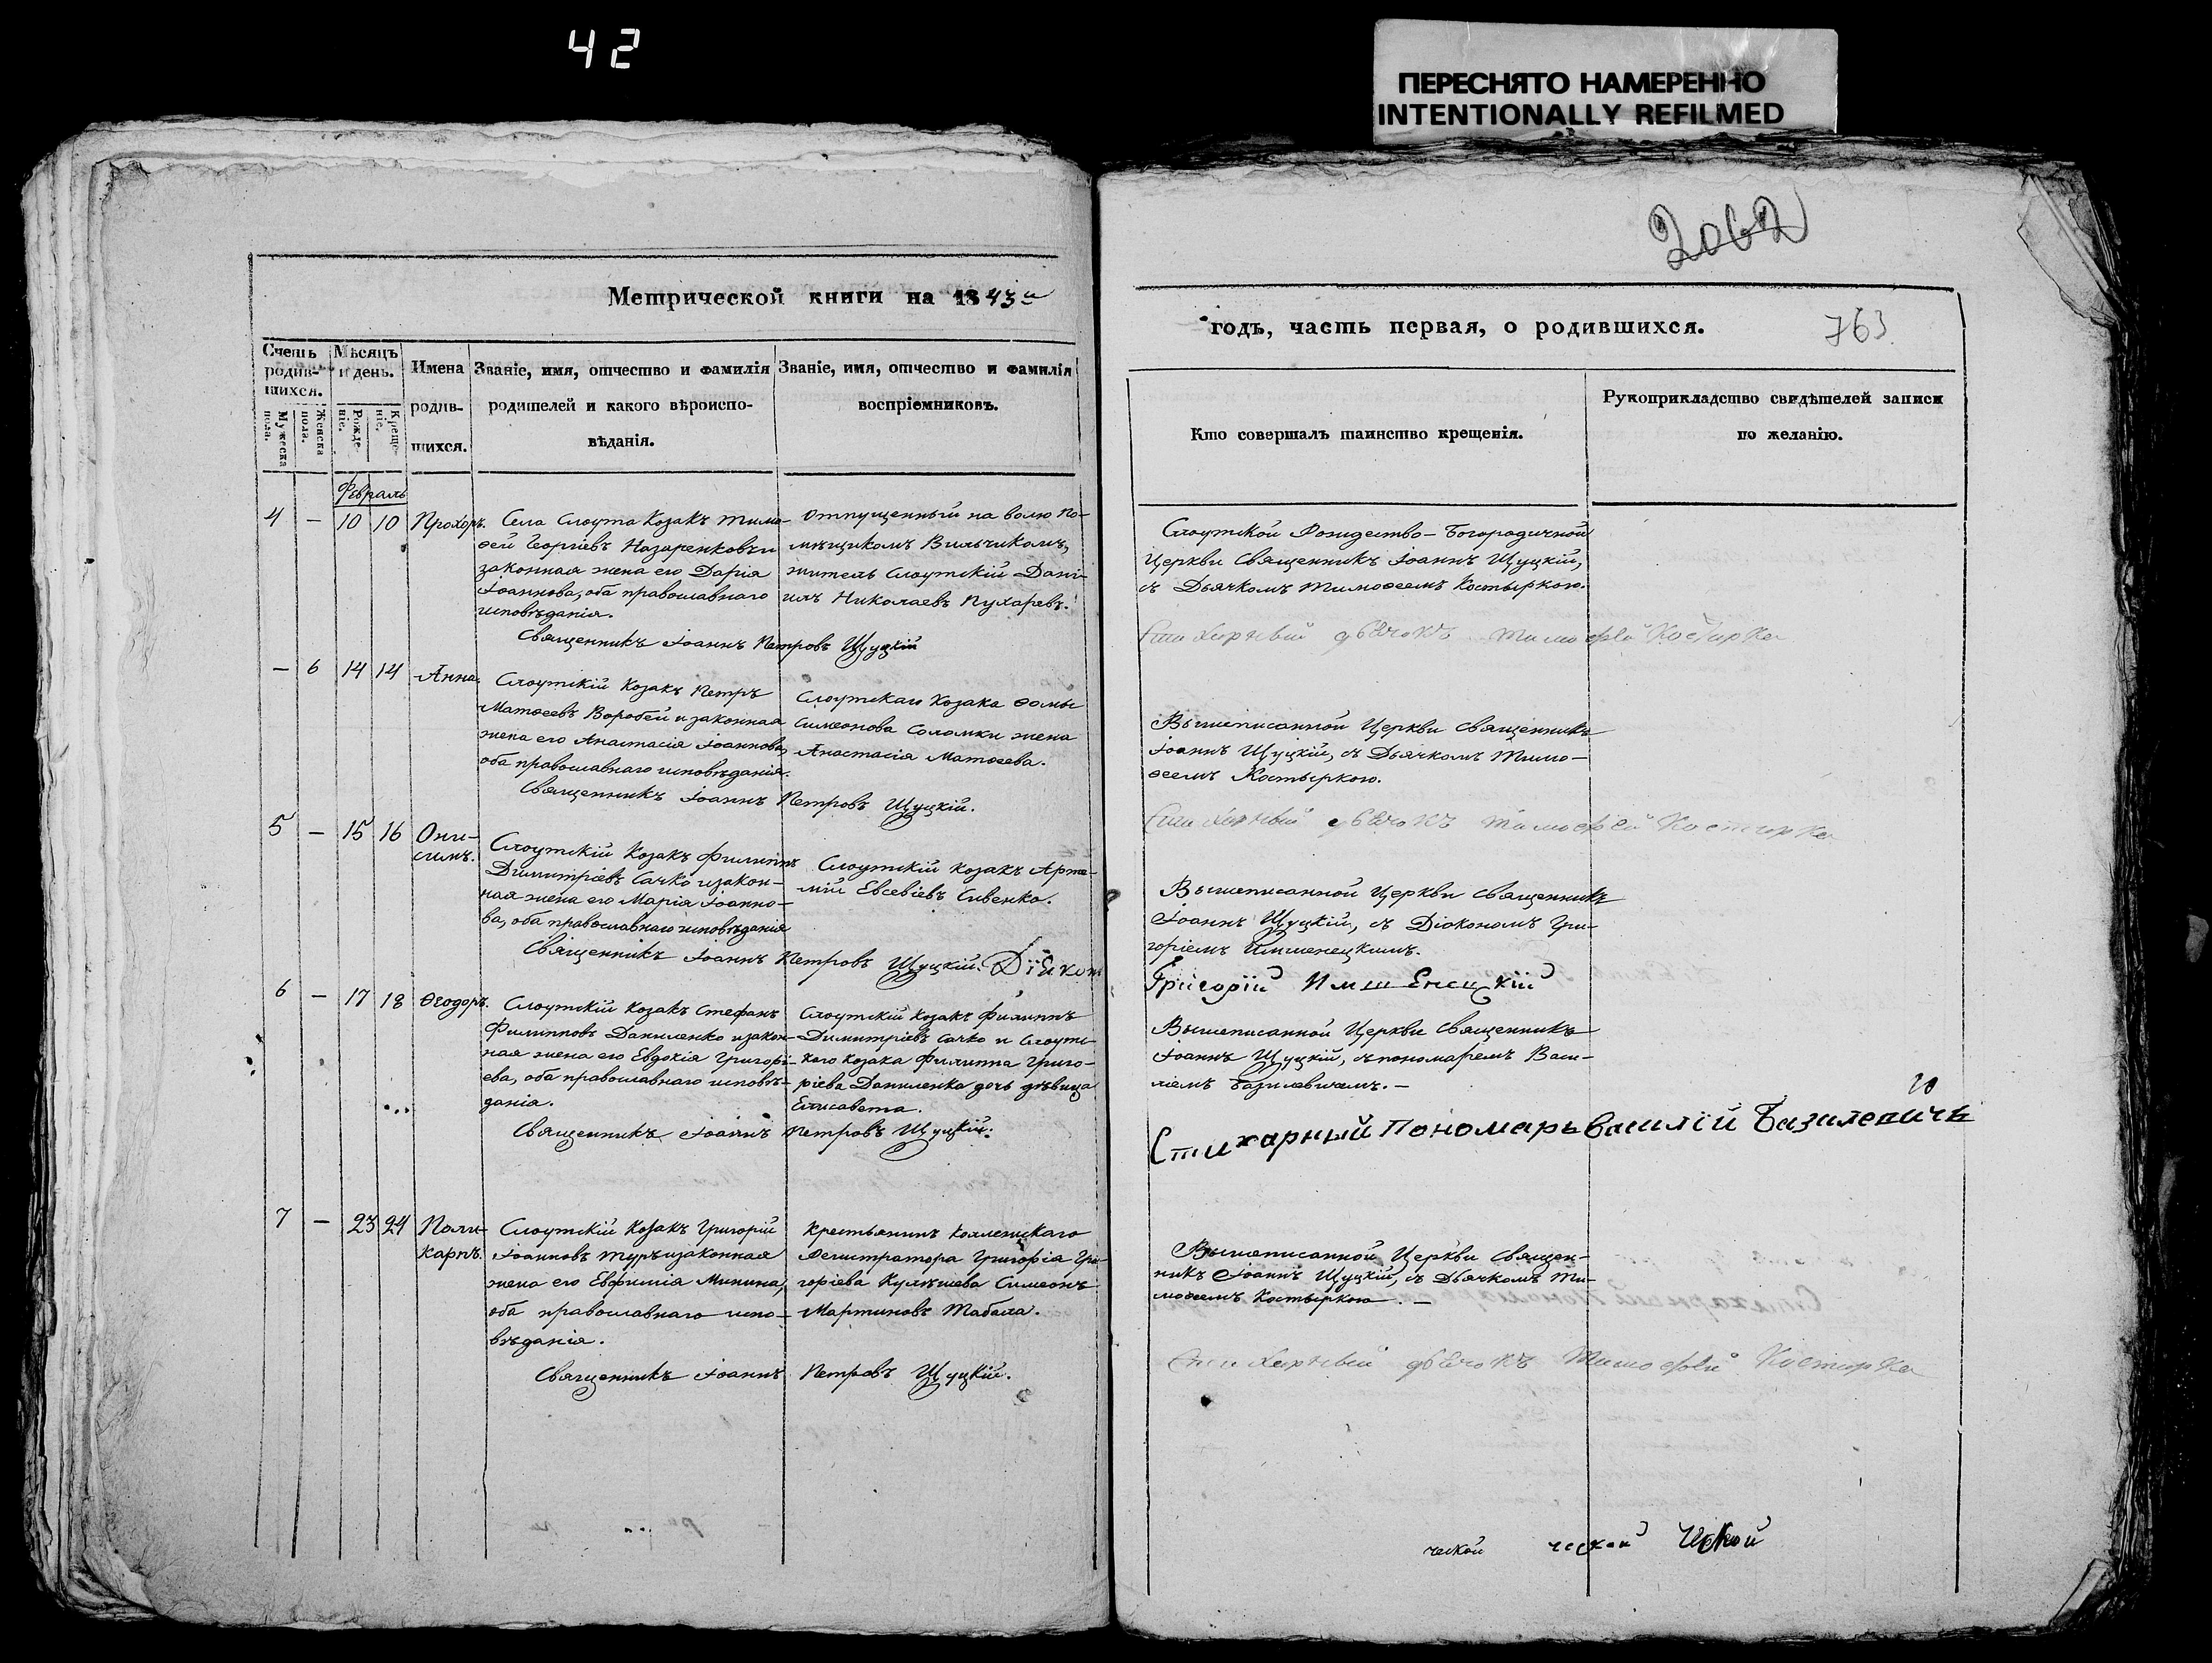 42
ПЕРЕСНЯТО НАМЕРЕННО
INTENTIONALLY REFILMED
2062
Метрической книги на 1843й
годъ, часть первая, о родившихся.
763
Счетъ родив-шихся.
Мужеска пола.
Женска пола.
Мѣсяцъ и день.
Рожде-ніе.
Креще-ніе.
Имена
родив-
шихся.
Званіе, имя, отчество и фамилія
родителей и какого вѣроиспо-
вѣданія.
Званіе, имя, отчество и фамилія
воспріемниковъ.
Кто совершалъ таинство крещенія.
Рукоприкладство свидѣтелей записи
по желанію.
Февраль
4 — 10 10 Прохоръ.
Села Слоута Козакъ Тимо-
ѳей Георгіевъ Назаренковъ и
законная жена его Дарія
Іоаннова, оба православнаго
исповѣданія.
Отпущенный на волю по-
мѣщикомъ Вильчикомъ,
житель Слоутскій Дані-
илъ Николаевъ Пухаревъ.
Священникъ Іоаннъ Петровъ Щуцкій
Слоутской Рождество-Богородичной
Церкви Священникъ Іоаннъ Щуцкій,
съ Дьячкомъ Тимоѳеемъ Костыркою.
Стихарный дьячокъ Тимофей Костирка
— 6 14 14 Анна.
Слоутскій Козакъ Петръ
Матѳеевъ Воробей и законная
жена его Анастасія Іоаннова,
оба православнаго исповѣданія.
Слоутскаго Козака Ѳомы
Симеонова Соломки жена
Анастасія Матѳеева.
Священникъ Іоаннъ Петровъ Щуцкій.
Вышеписанной Церкви Священникъ
Іоаннъ Щуцкій, съ Дьячкомъ Тимо-
ѳеемъ Костыркою.
Стихарный дьячокъ Тимофей Костирка
5 — 15 16 Они-
симъ.
Слоутскій Козакъ Филиппъ
Димитріевъ Сачко и закон-
ная жена его Марія Іоанно-
ва, оба православнаго исповѣданія
Слоутскій Козакъ Арте-
мій Евсевіевъ Сивенко.
Священникъ Іоаннъ Петровъ Щуцкій.
Вышеписанной Церкви Священникъ
Іоаннъ Щуцкій, съ Діокономъ Гри-
горіемъ Имшенецкимъ.
Діякон Григорій Имшенецкій
6 — 17 18 Ѳеодоръ.
Слоутскій Козакъ Стефанъ
Филипповъ Даниленко и закон-
ная жена его Евдокія Григорі-
ева, оба православнаго исповѣ-
данія.
Слоутскій Козакъ Филиппъ
Димитріевъ Сачко и Слоутс
кого Козака Филиппа Григо-
ріева Даниленка дочь дѣвица
Елисавета.
Священникъ Іоаннъ Петровъ Щуцкій.
Вышеписанной Церкви Священникъ
Іоаннъ Щуцкій, съ пономаремъ Васи-
ліемъ Базилевичемъ. —
Стихарный Пономарь Василій Базилевичъ
7 — 23 24 Поли-
карпъ.
Слоутскій Козакъ Григорій
Іоанновъ Туръ и законная
жена его Евфимія Минина,
оба православнаго испо-
вѣданія.
Крестьянинъ Коллежскаго
Регистратора Григорія Гри-
горіева Кулѣшева Симеонъ
Мартиновъ Табала.
Священникъ Іоаннъ Петровъ Щуцкій.
Вышеписанной Церкви Священ-
никъ Іоаннъ Щуцкій, съ Дьячкомъ Ти-
моѳеемъ Костыркою. —
Стихарный дьячокъ Тимофей Костирка
ческой ческой